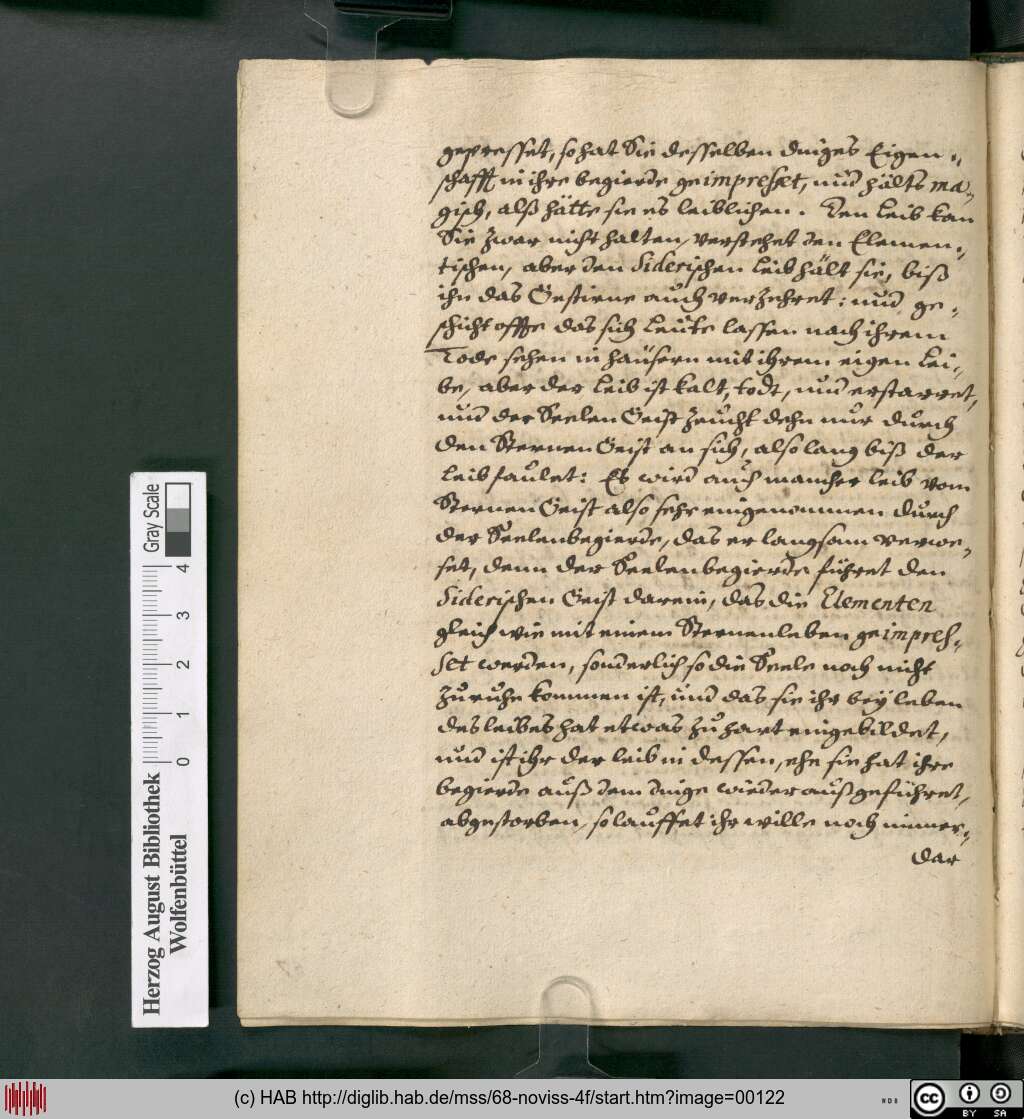 gepresset, so hat Sie desselben dinges Eigen-
schafft in ihre begierde geimpresset, und hälts ma-
gisch, alß hätte sie es leiblichen. Den Leib kan
Sie zwar nicht halten, verstehet den Elemen-
tischen, aber den Siderischen Leib hält sie, biß
ihn das Gestirne auch verzehret: und ge-
schicht offte das sich Leute lassen nach ihrem
Tode sehen in häusern mit ihrem eigen Lei-
be, aber der Leib ist kalt, todt, und erstarret,
und der Seelen Geist zeucht dehn nur durch
den Sternen Geist an sich, also lang biß der
Leib faulet: Es wird auch mancher Leib vom
Sternen Geist also sehr eingenommen durch
der Seelenbegierde, das er langsam verwe-
set, denn der Seelenbegierde führet den
Siderischen Geist darein, das die Elementen
gleich wie mit einem Sternenleben geimpres-
set werden, sonderlich so die Seele noch nicht
zu ruhe kommen ist, und das sie ihr bey leben
des leibes hat etwas zu hart eingebildet,
und ist ihr der leib in dessen, ehe sie hat ihre
begierde auß dem dinge wieder außgeführet,
abgestorben, so lauffet ihr wille noch immer-
dar
Herzog August Bibliothek
Wolfenbüttel
0 1 2 3 4
Gray Scale
(c) HAB http://diglib.hab.de/mss/68-noviss-4f/start.htm?image=00122
WDB
cc BY SA